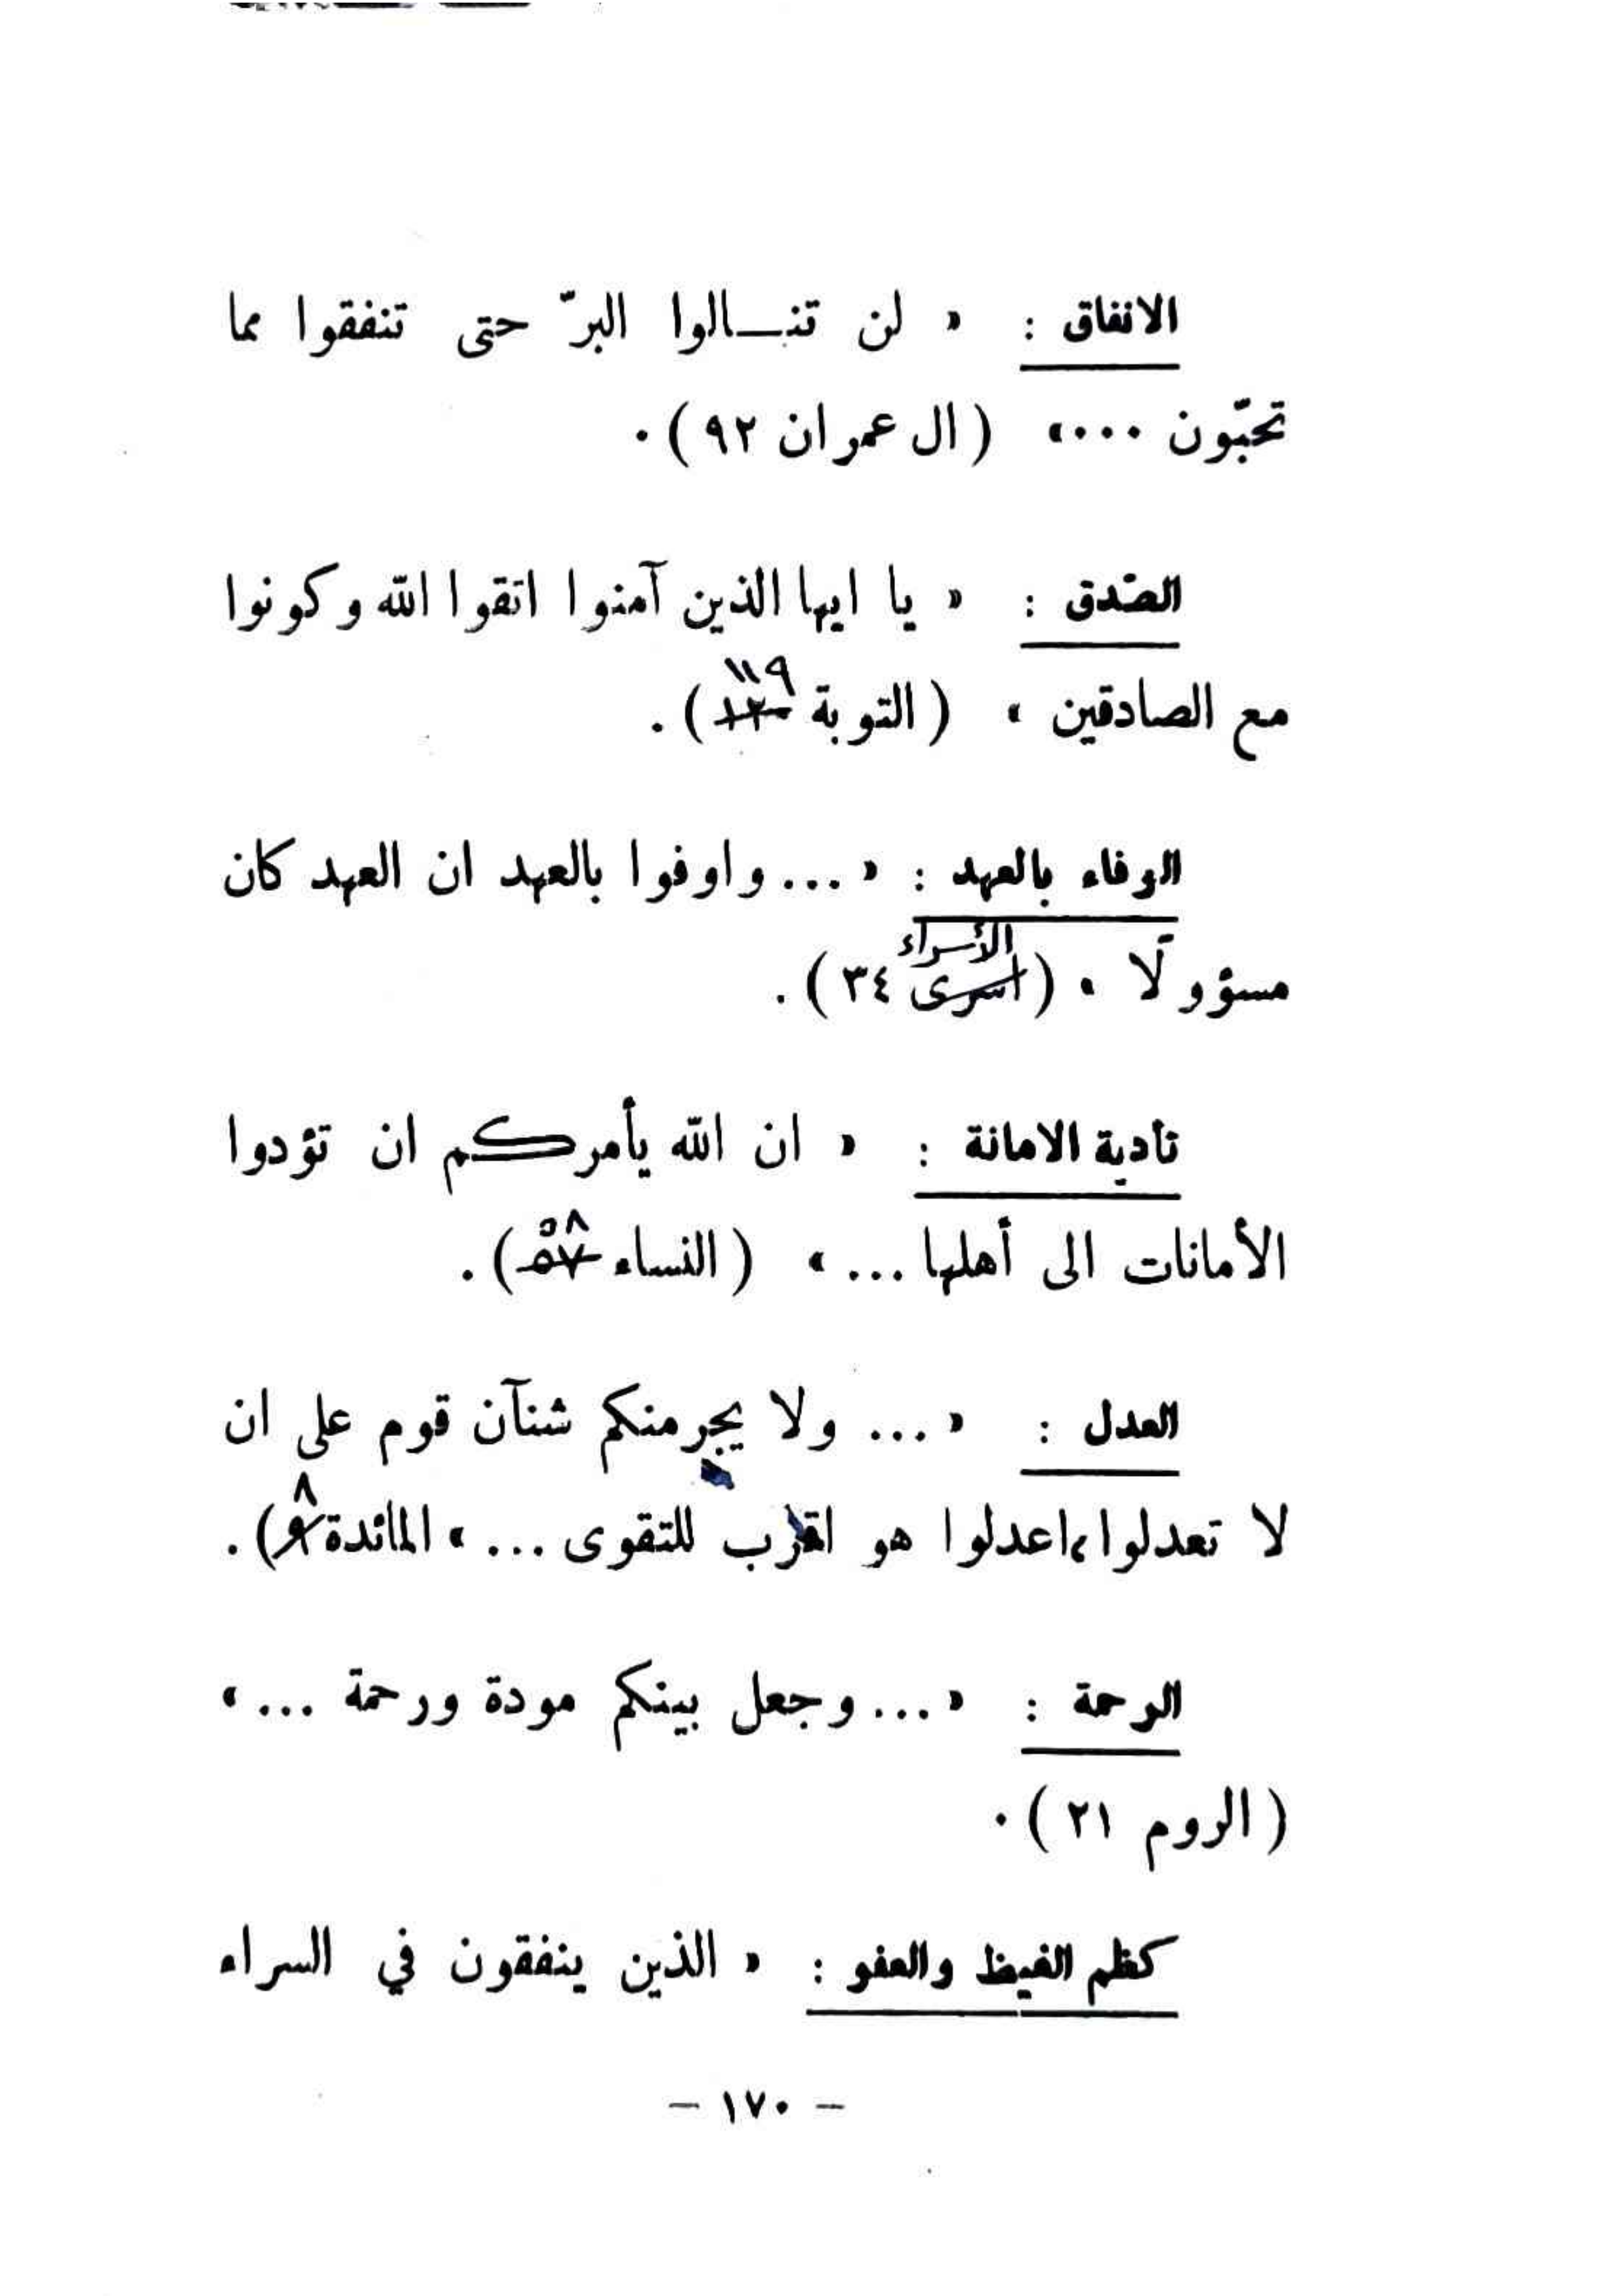 الانفاق : « لن تنالوا البرّ حتى تنفقوا مما
تحبّون ...» (ال عمران ٩٢).
الصّدق : « يا ايها الذين آمنوا اتقوا الله وكونوا
١١٩
مع الصادقين » (التوبة ١٢٠).
الوفاء بالعهد : « ... واوفوا بالعهد ان العهد كان
الأسراء
مسؤولًا » (اسرى ٣٤).
تأدية الامانة : « ان الله يأمركم ان تؤدوا
٥٨
الأمانات الى أهلها ... » (النساء ٥٧).
العدل : « ... ولا يجرمنكم شنآن قوم على ان
٨
لا تعدلوا، اعدلوا هو اقرب للتقوى ... » المائدة ٩).
الرحمة : « ... وجعل بينكم مودة ورحمة ... »
(الروم ٢١).
كظم الغيظ والعفو : « الذين ينفقون في السراء
– ١٧٠ –